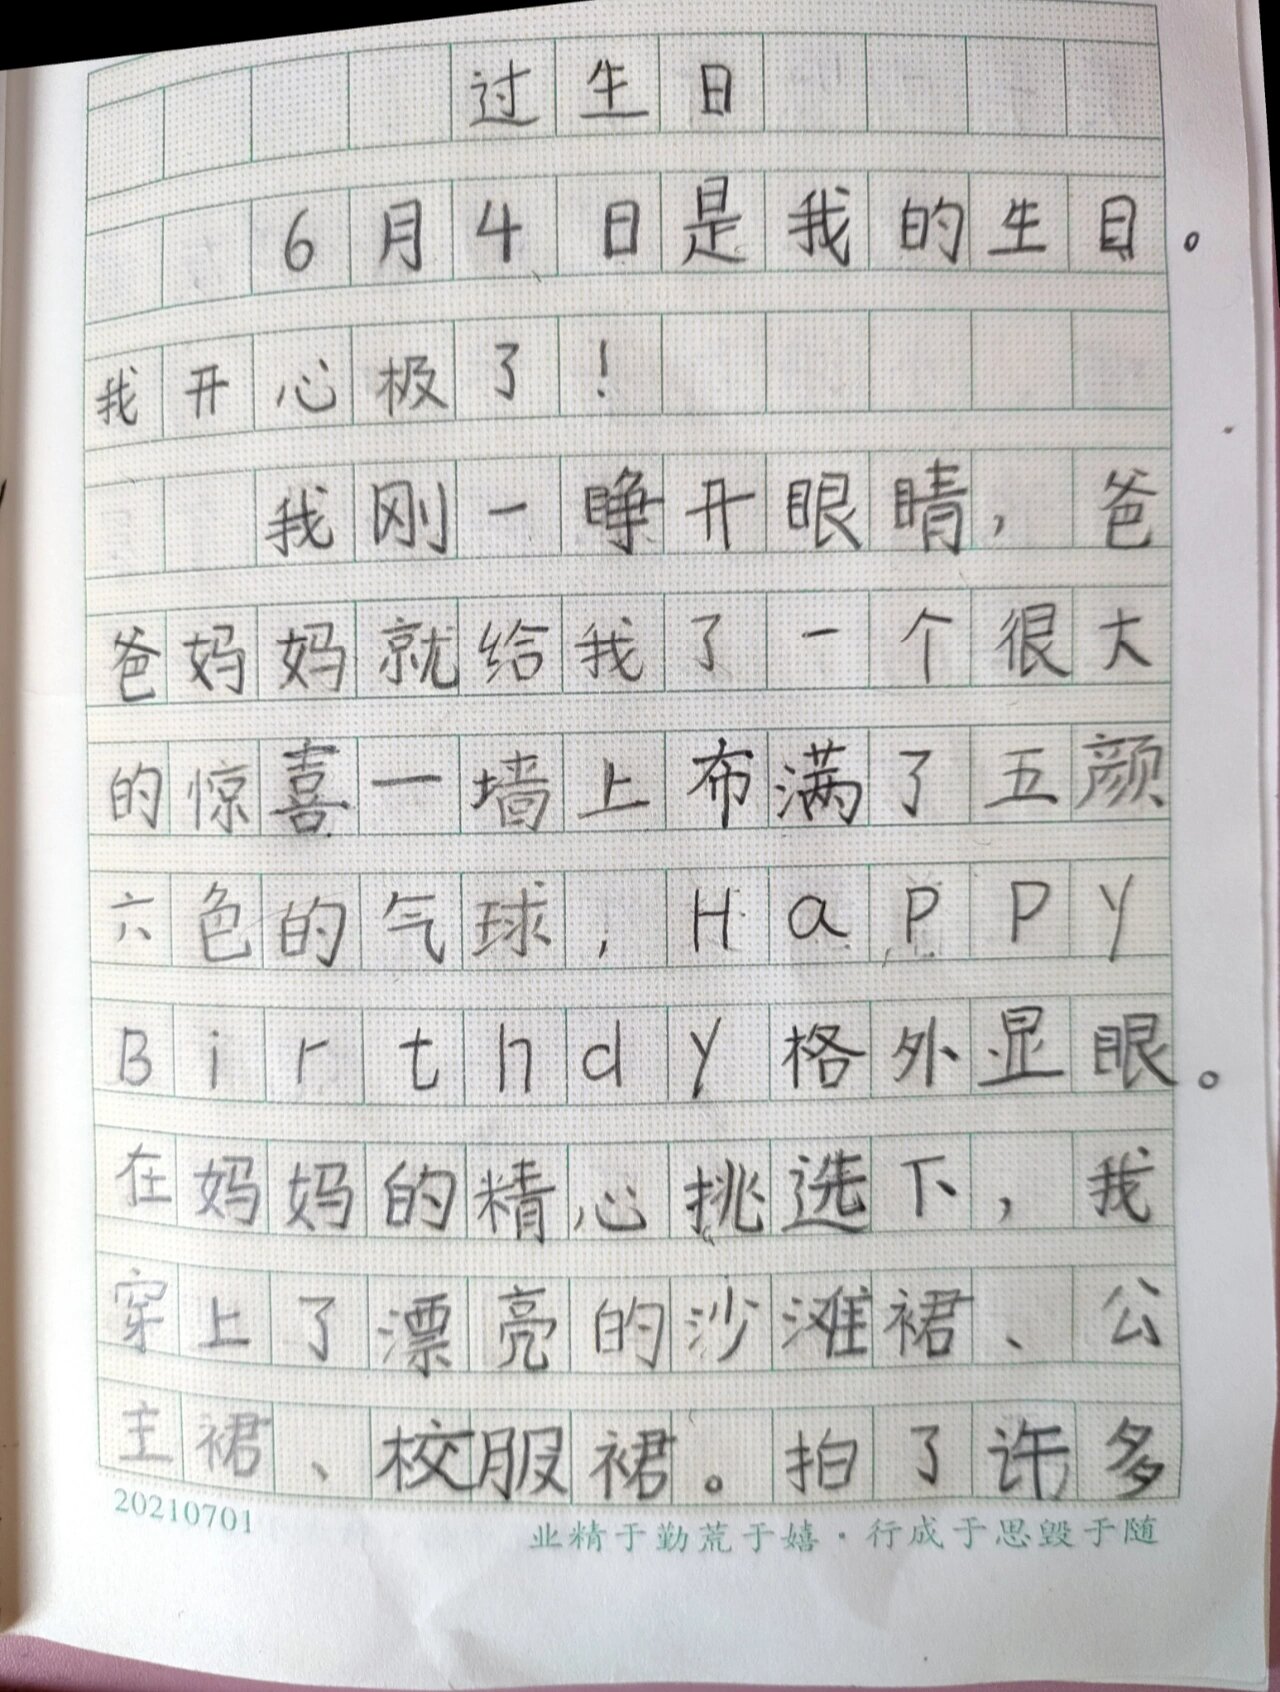 过生日
6月4日是我的生日。
我开心极了！
我刚一睁开眼睛，爸
爸妈妈就给我了一个很大
的惊喜一墙上布满了五颜
六色的气球，HaPPy
Birthdy格外显眼。
在妈妈的精心挑选下，我
穿上了漂亮的沙滩裙、公
主裙、校服裙。拍了许多
20210701
业精于勤荒于嬉·行成于思毁于随